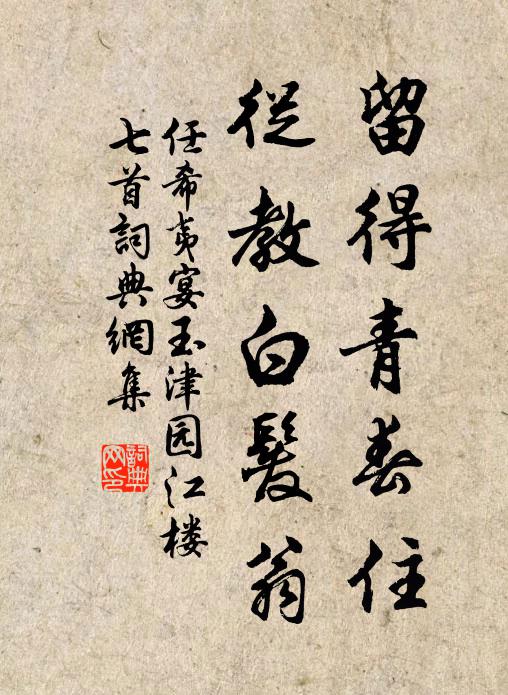 留得青春住
從教白髮翁
任希夷宴玉津园江楼
七首詞典網集
詞典
网印